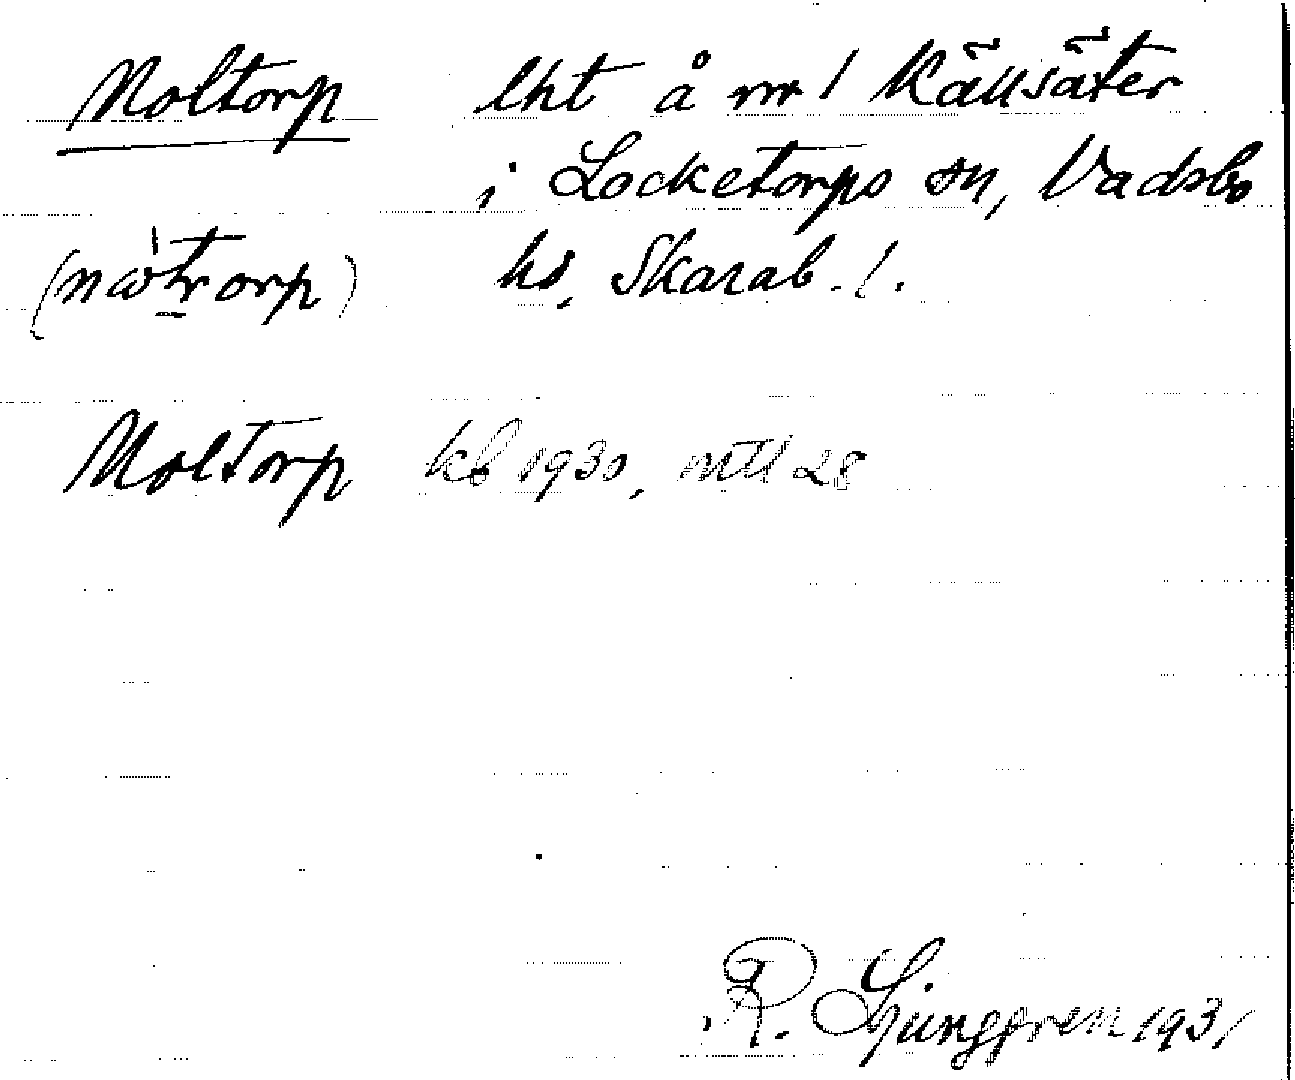 Noltorp lht å nr 1 Källsäter
i Locketorps sn, Vadsbo
(nωtrorp) hd, Skarab. l.
Noltorp kb 1930, mtl 28
R. Ljunggren 1931